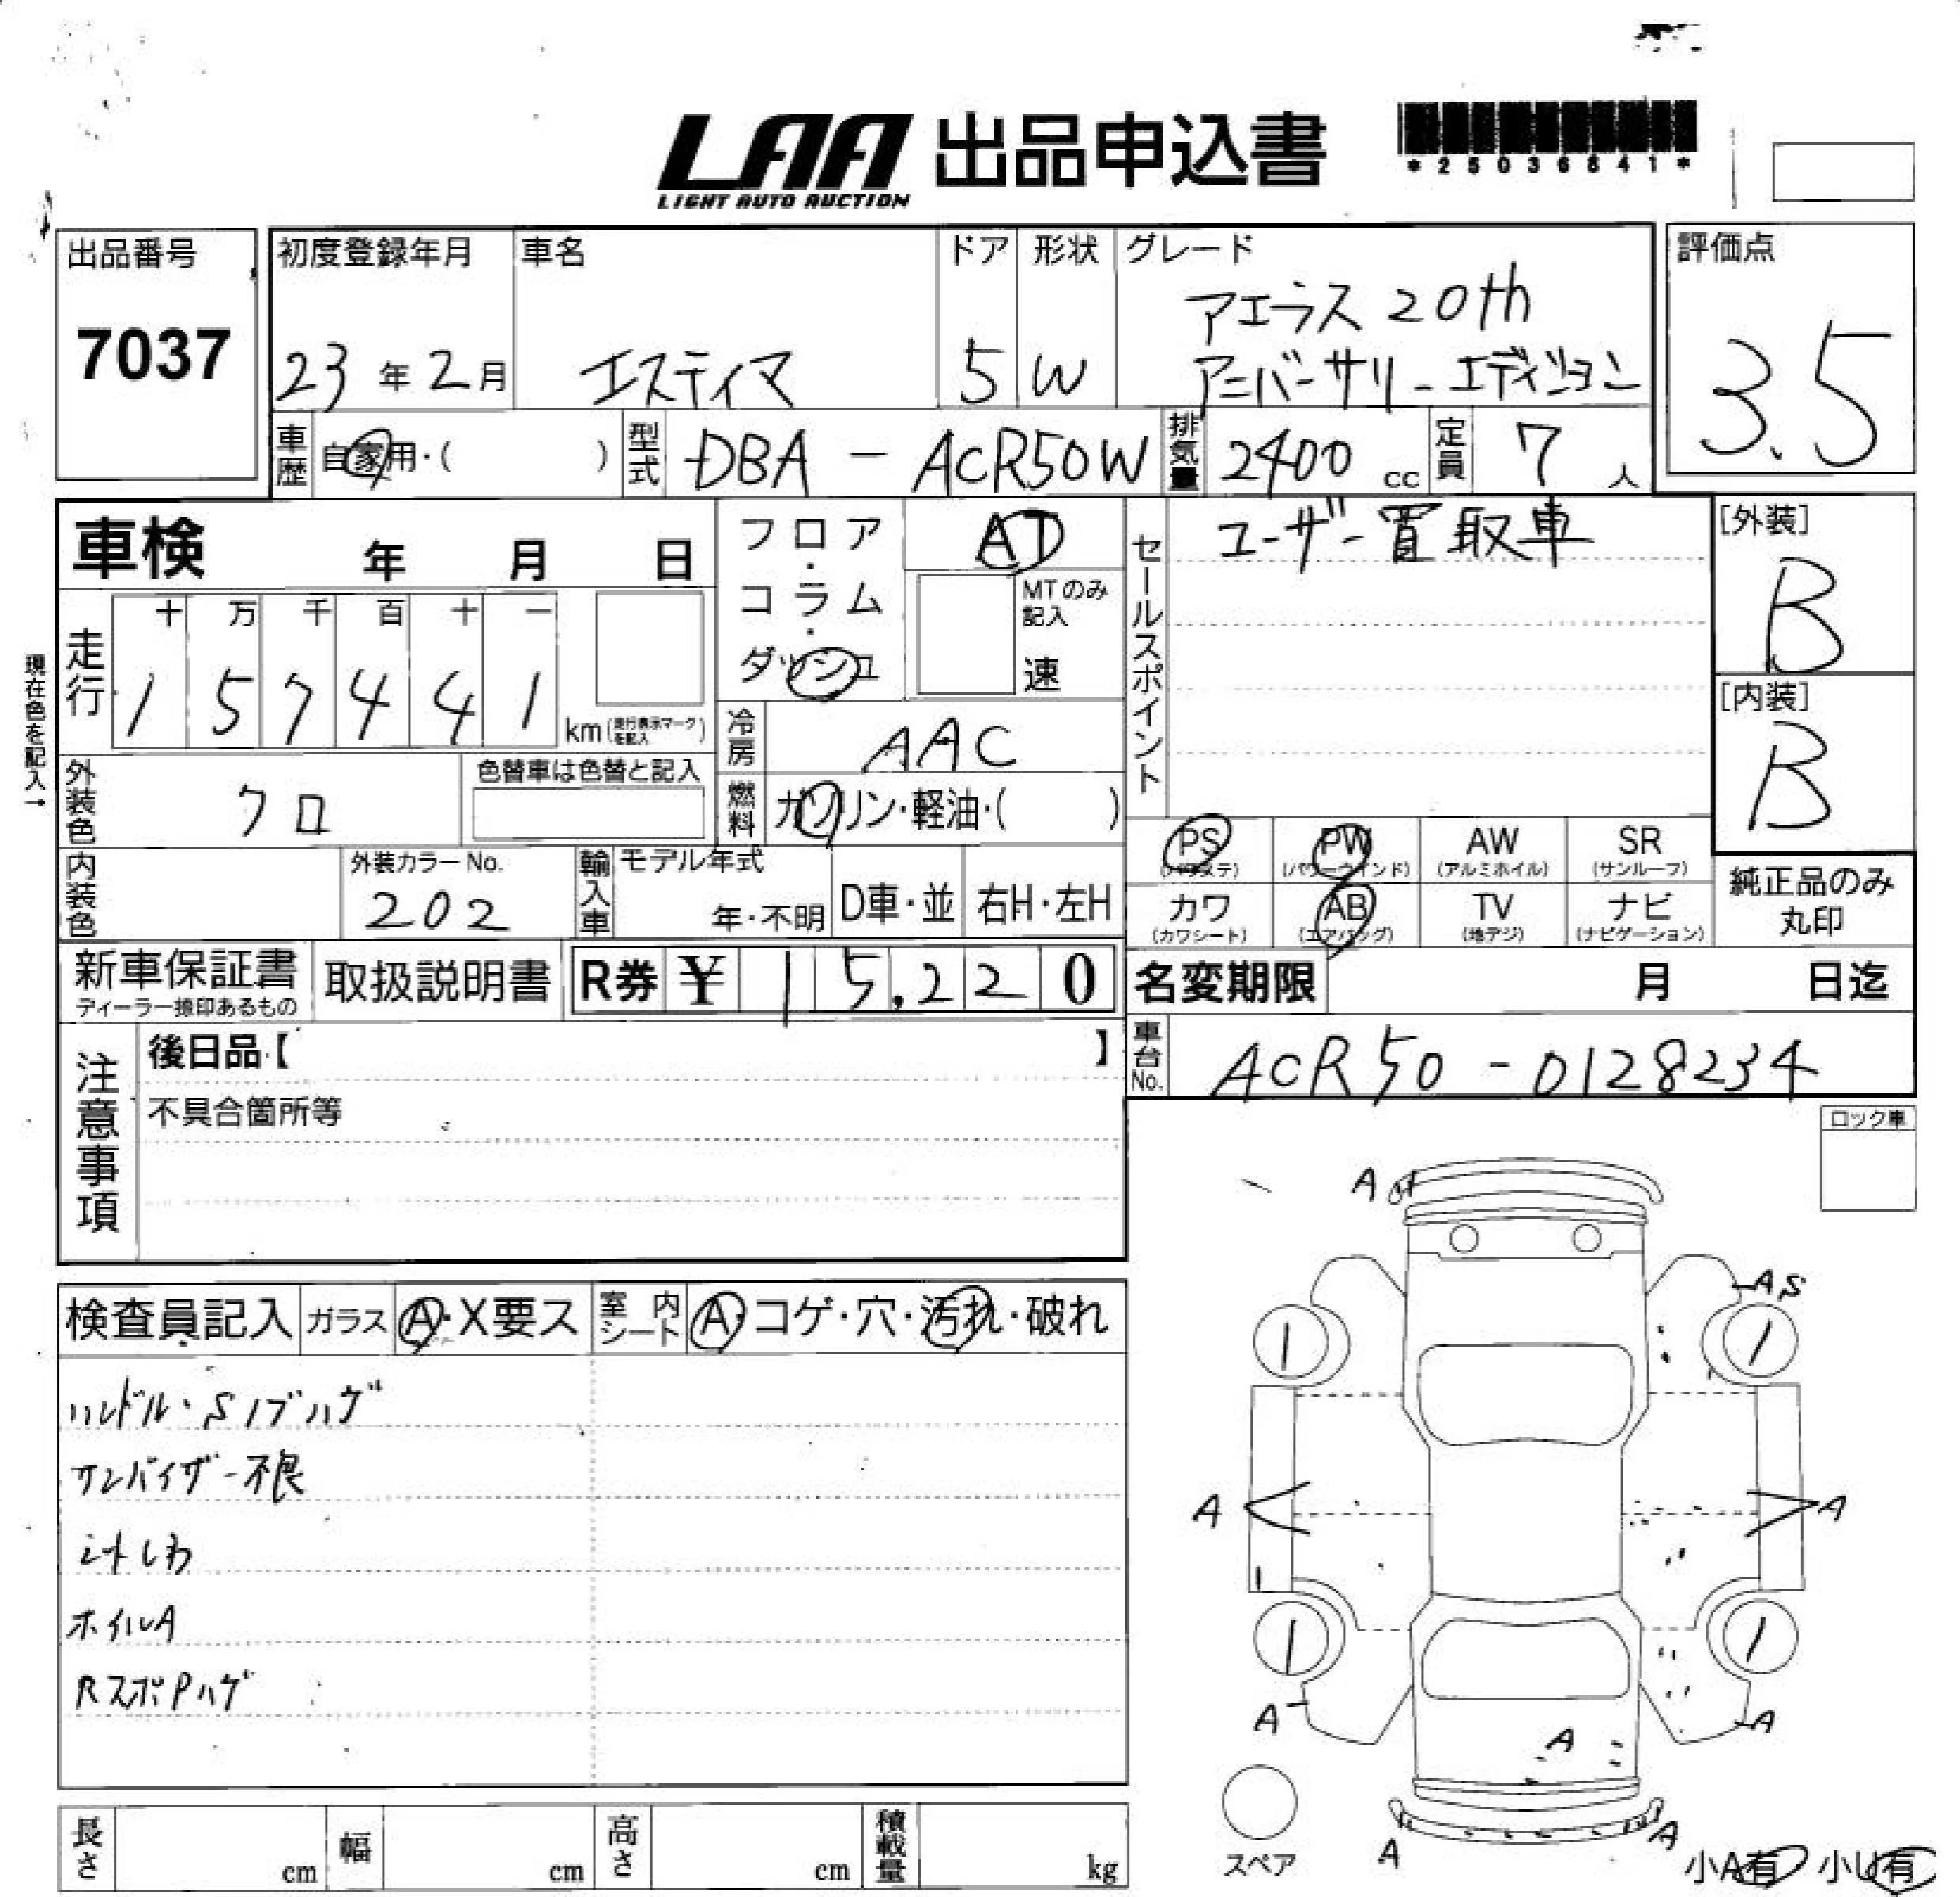 LAA 出品申込書
LIGHT AUTO AUCTION
*25036841*
出品番号
7037
初度登録年月
23年2月
車名
エスティマ
ドア
5
形状
W
グレード
アエラス 20th
アニバーサリーエディション
評価点
3.5
車歴
自家用・( )
型式
DBA-ACR50W
排気量
2400cc
定員
7人
車検 年 月 日
フロア・コラム・ダッシュ
AT
MTのみ記入
速
セールスポイント
ユーザー買取車
[外装]
B
[内装]
B
現在色を記入→
走行
十 万 千 百 十 一
1 5 7 4 4 1
km(走行表示マークを記入)
冷房
AAC
外装色
クロ
色替車は色替と記入
燃料
ガソリン・軽油・( )
内装色
外装カラーNo.
202
輸入車
モデル年式
年・不明
D車・並
右H・左H
PS
(パワステ)
PW
(パワーウインド)
AW
(アルミホイル)
SR
(サンルーフ)
カワ
(カワシート)
AB
(エアバッグ)
TV
(地デジ)
ナビ
(ナビゲーション)
純正品のみ
丸印
新車保証書
ディーラー捺印あるもの
取扱説明書
R券 ¥15,220
名変期限 月 日迄
車台No.
ACR50-0128234
注意事項
後日品【 】
不具合箇所等
ロック車
検査員記入
ガラス A・X要ス
室内シート A・コゲ・穴・汚れ・破れ
ハンドル・Sノブハゲ
サンバイザー不良
シートしわ
ホイルA
RスポPハゲ
A
A,S
A
A
A
A
A
A
A
スペア
小A有 小U有
長さ cm
幅 cm
高さ cm
積載量 kg